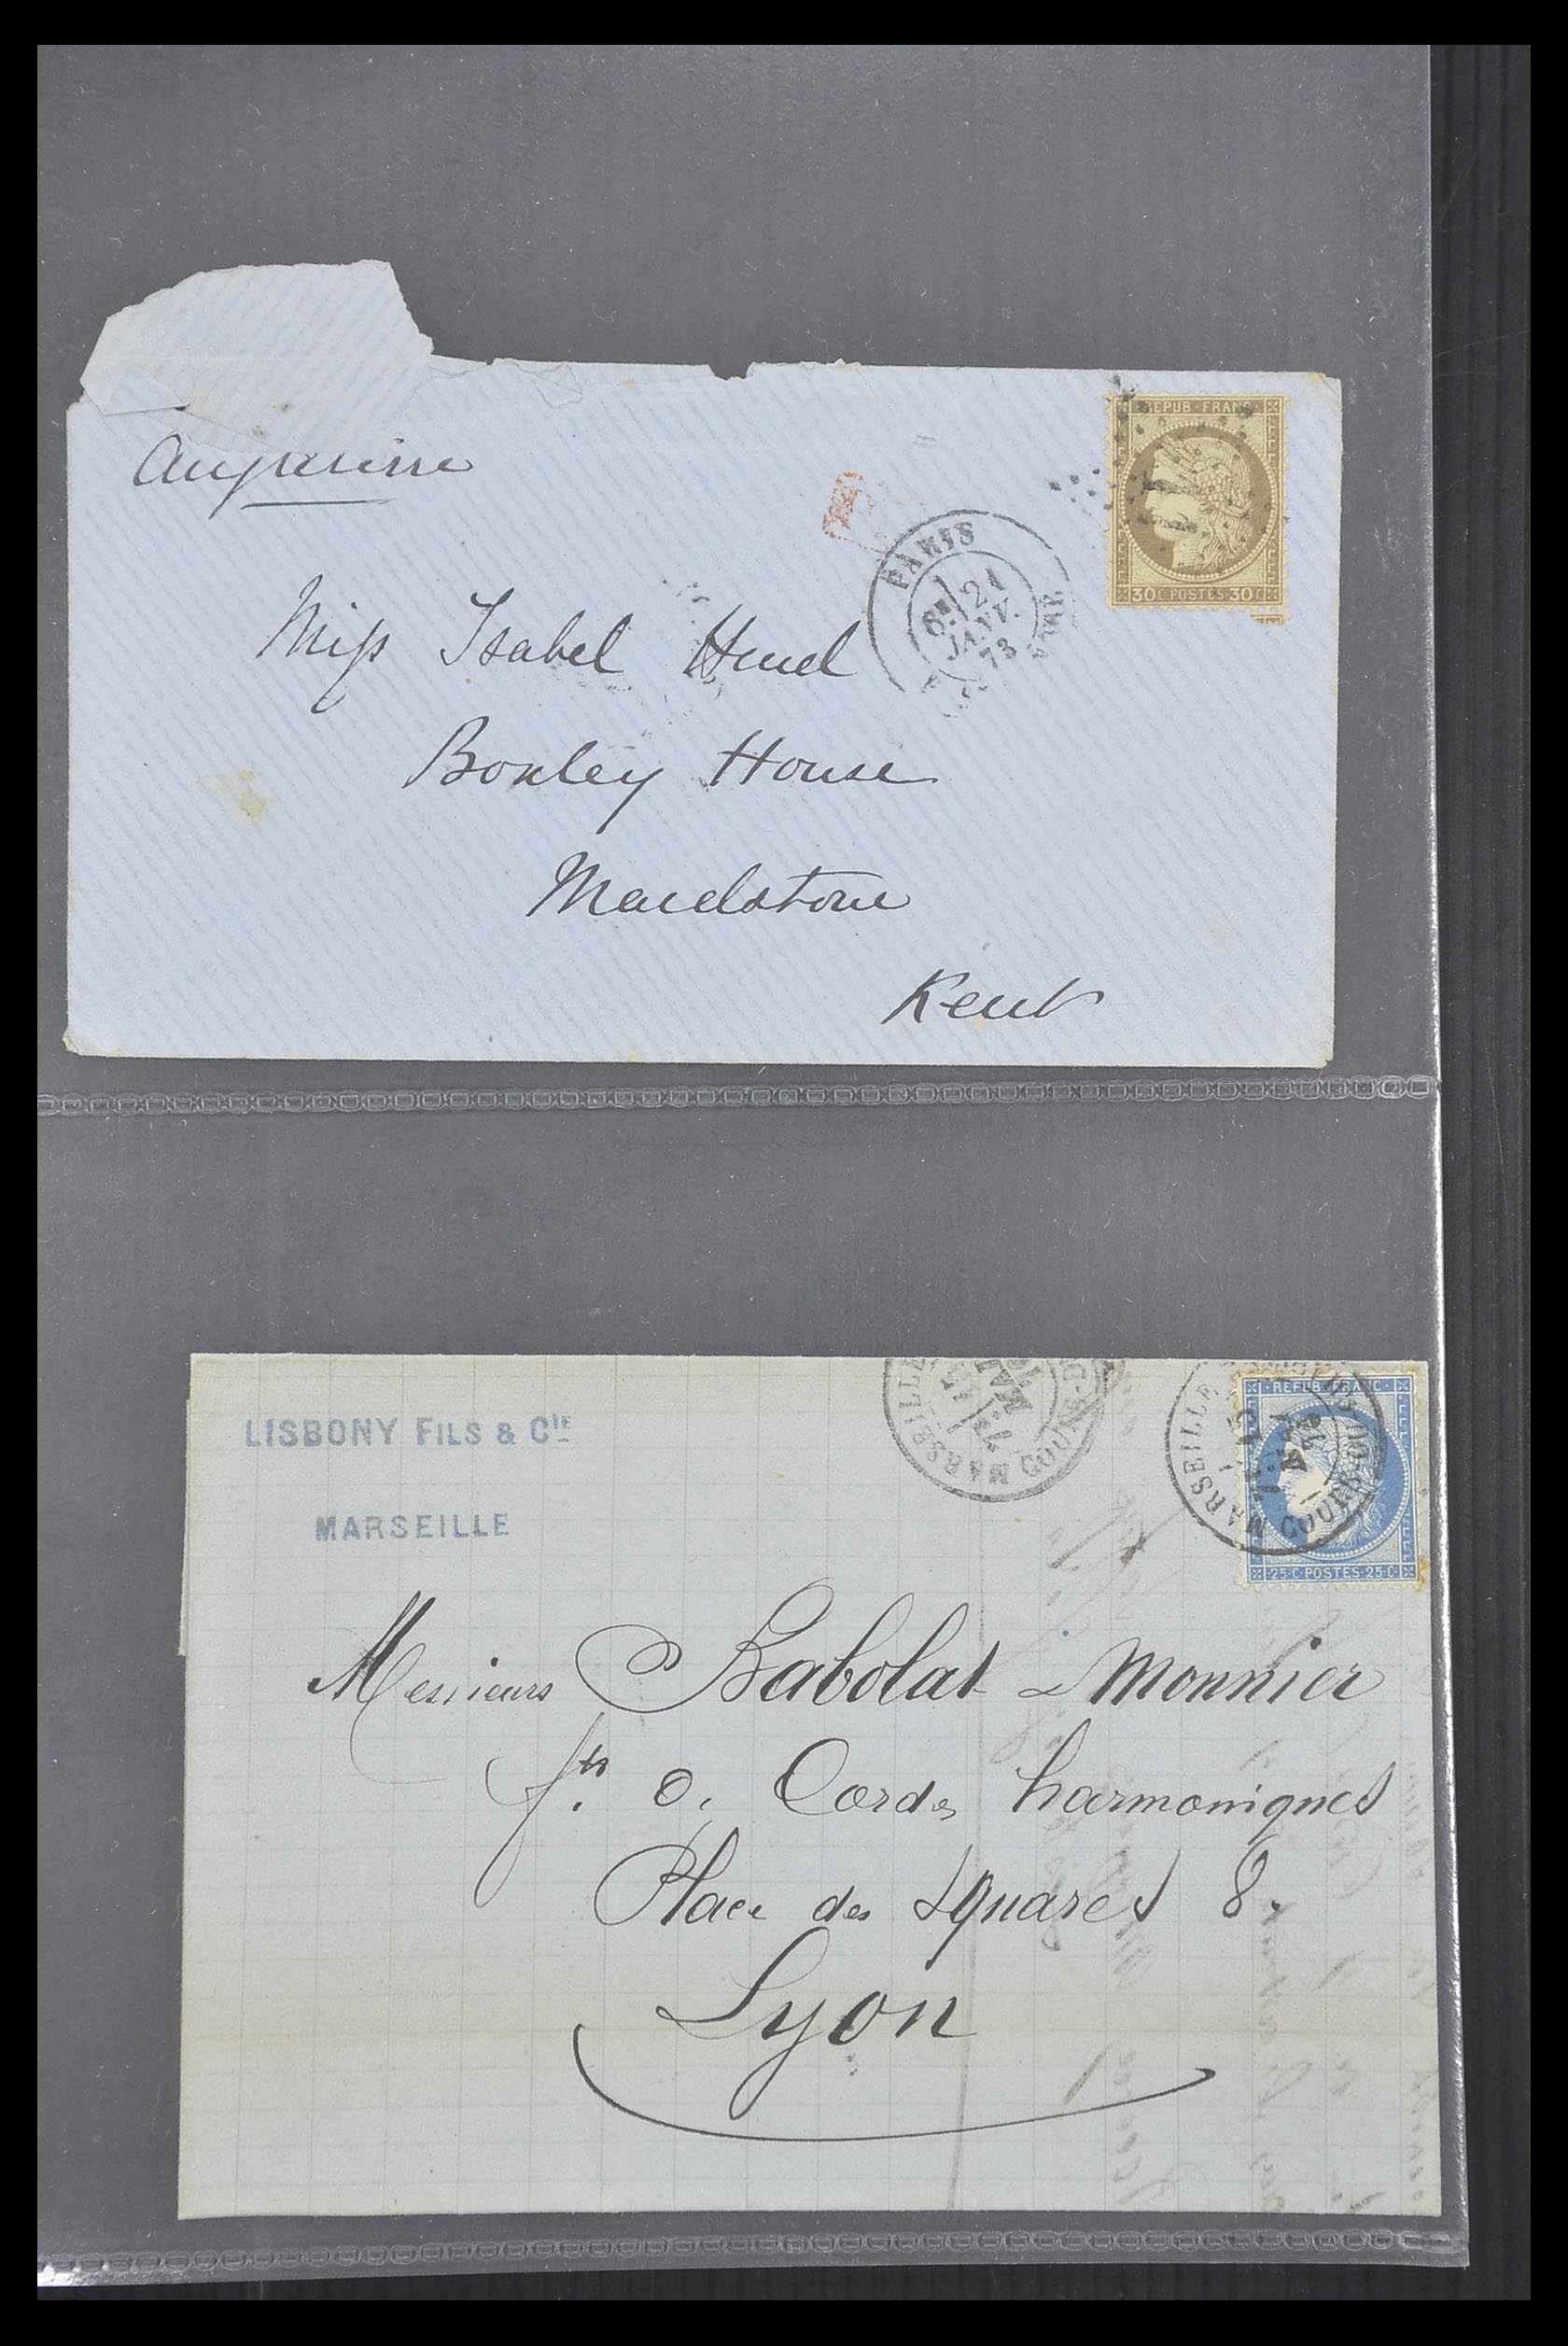 Angleterre
REPUB · FRANC
30 C POSTES 30 C
PARIS
6E 21
JANV.
73
Miss Isabel
Boxley House
Maidstone
Kent
LISBONY FILS & CIE
MARSEILLE
MARSEILLE
MARSEILLE
REPUB · FRANC
25 · C POSTES · 25 C
Messieurs Babolat & Monnier
fts de Cordes harmoniques
Place des Squares 8.
Lyon